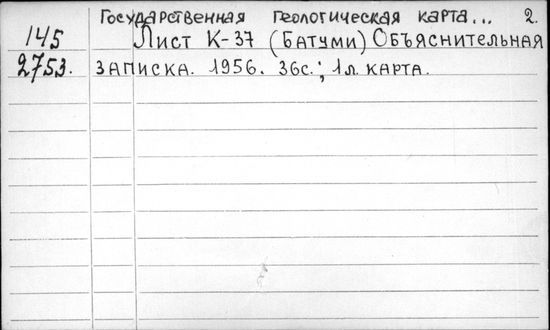 Государственная геологическая карта... 2.
145 Лист К-37 (Батуми) Объяснительная
2753. записка. 1956. 36с.; 1л. карта.